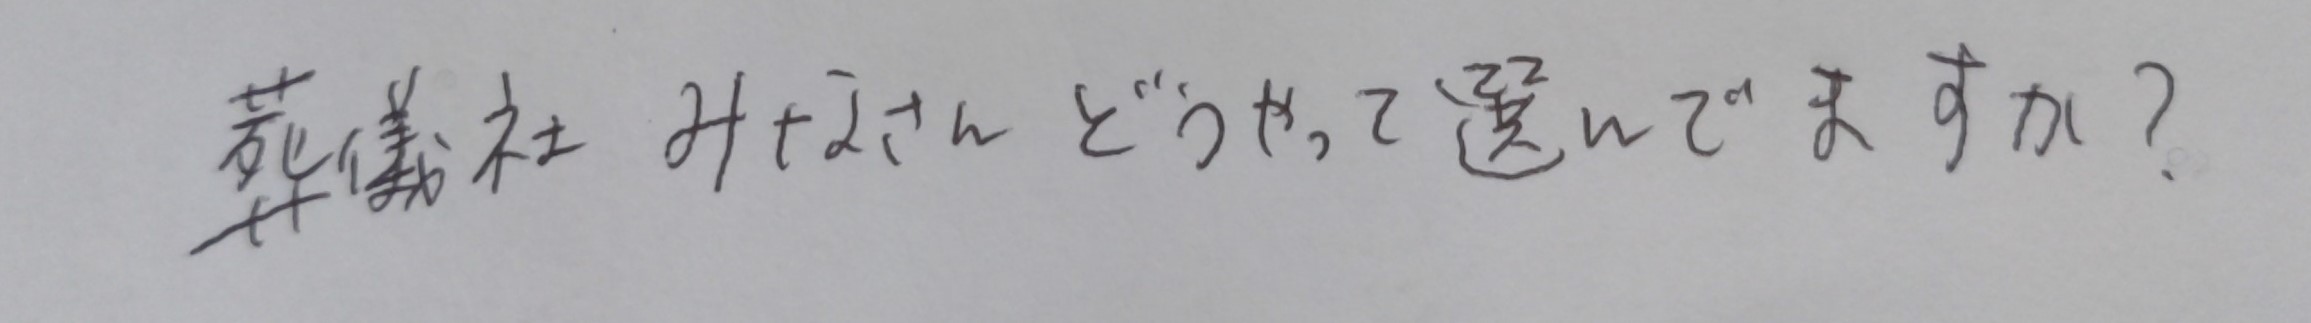 葬儀社 みなさんどうやって選んでますか?